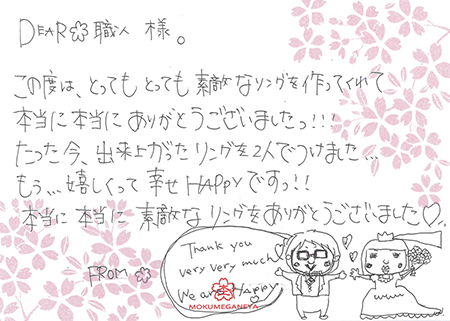 DEAR 職人 様。
この度は、とってもとっても素敵なリングを作ってくれて
本当に本当にありがとうございましたっ!!!
たった今、出来上がったリングを2人でつけました...
もぅ...嬉しくって幸せHAPPyですっ!!
本当に本当に素敵なリングをありがとうございました♡。
FROM
Thank you
very very much.
We are Happy.
MOKUMEGANEYA